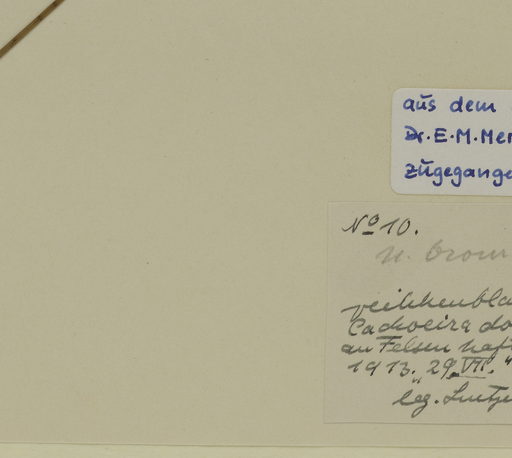 aus dem
Dr. E. M. Mer
zugegange
No 10.
veilchenbla
Cachoeira do
an Felsen haft
1913. 29. VII. "
leg. Luetze